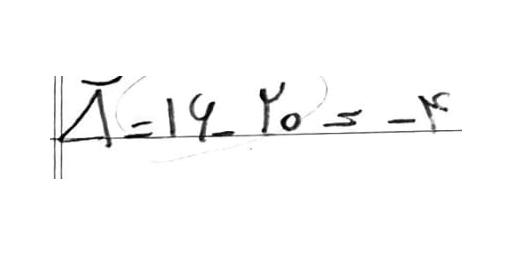 Δ = ۱۶ - ۲۰ = -۴